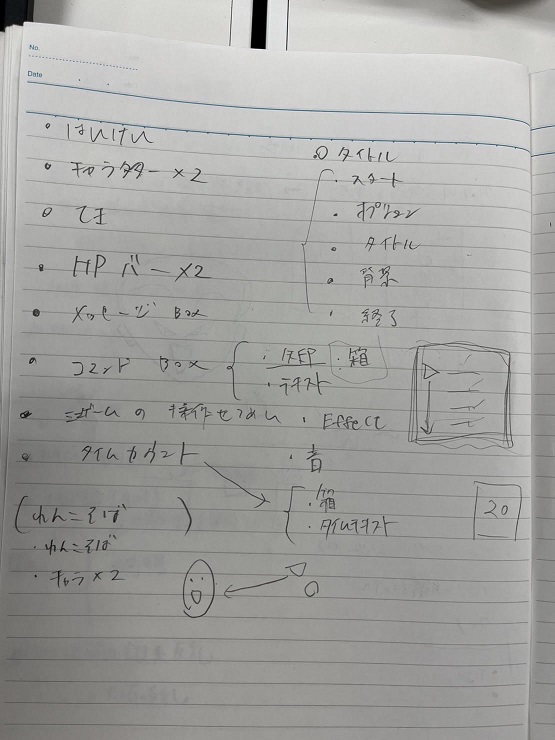 No.
Date
・はいけい
・キャラクター×2
・てき
・HPバー×2
・メッセージBox
・コマンド Box
・箱
・テキスト
・ミニゲームの操作せつめい
・Effect
・タイムカウント
・音
・箱
・タイムテキスト
20
(わんこそば)
・わんこそば
・キャラ×2
・タイトル
・スタート
・オプション
・タイトル
・背景
・終了